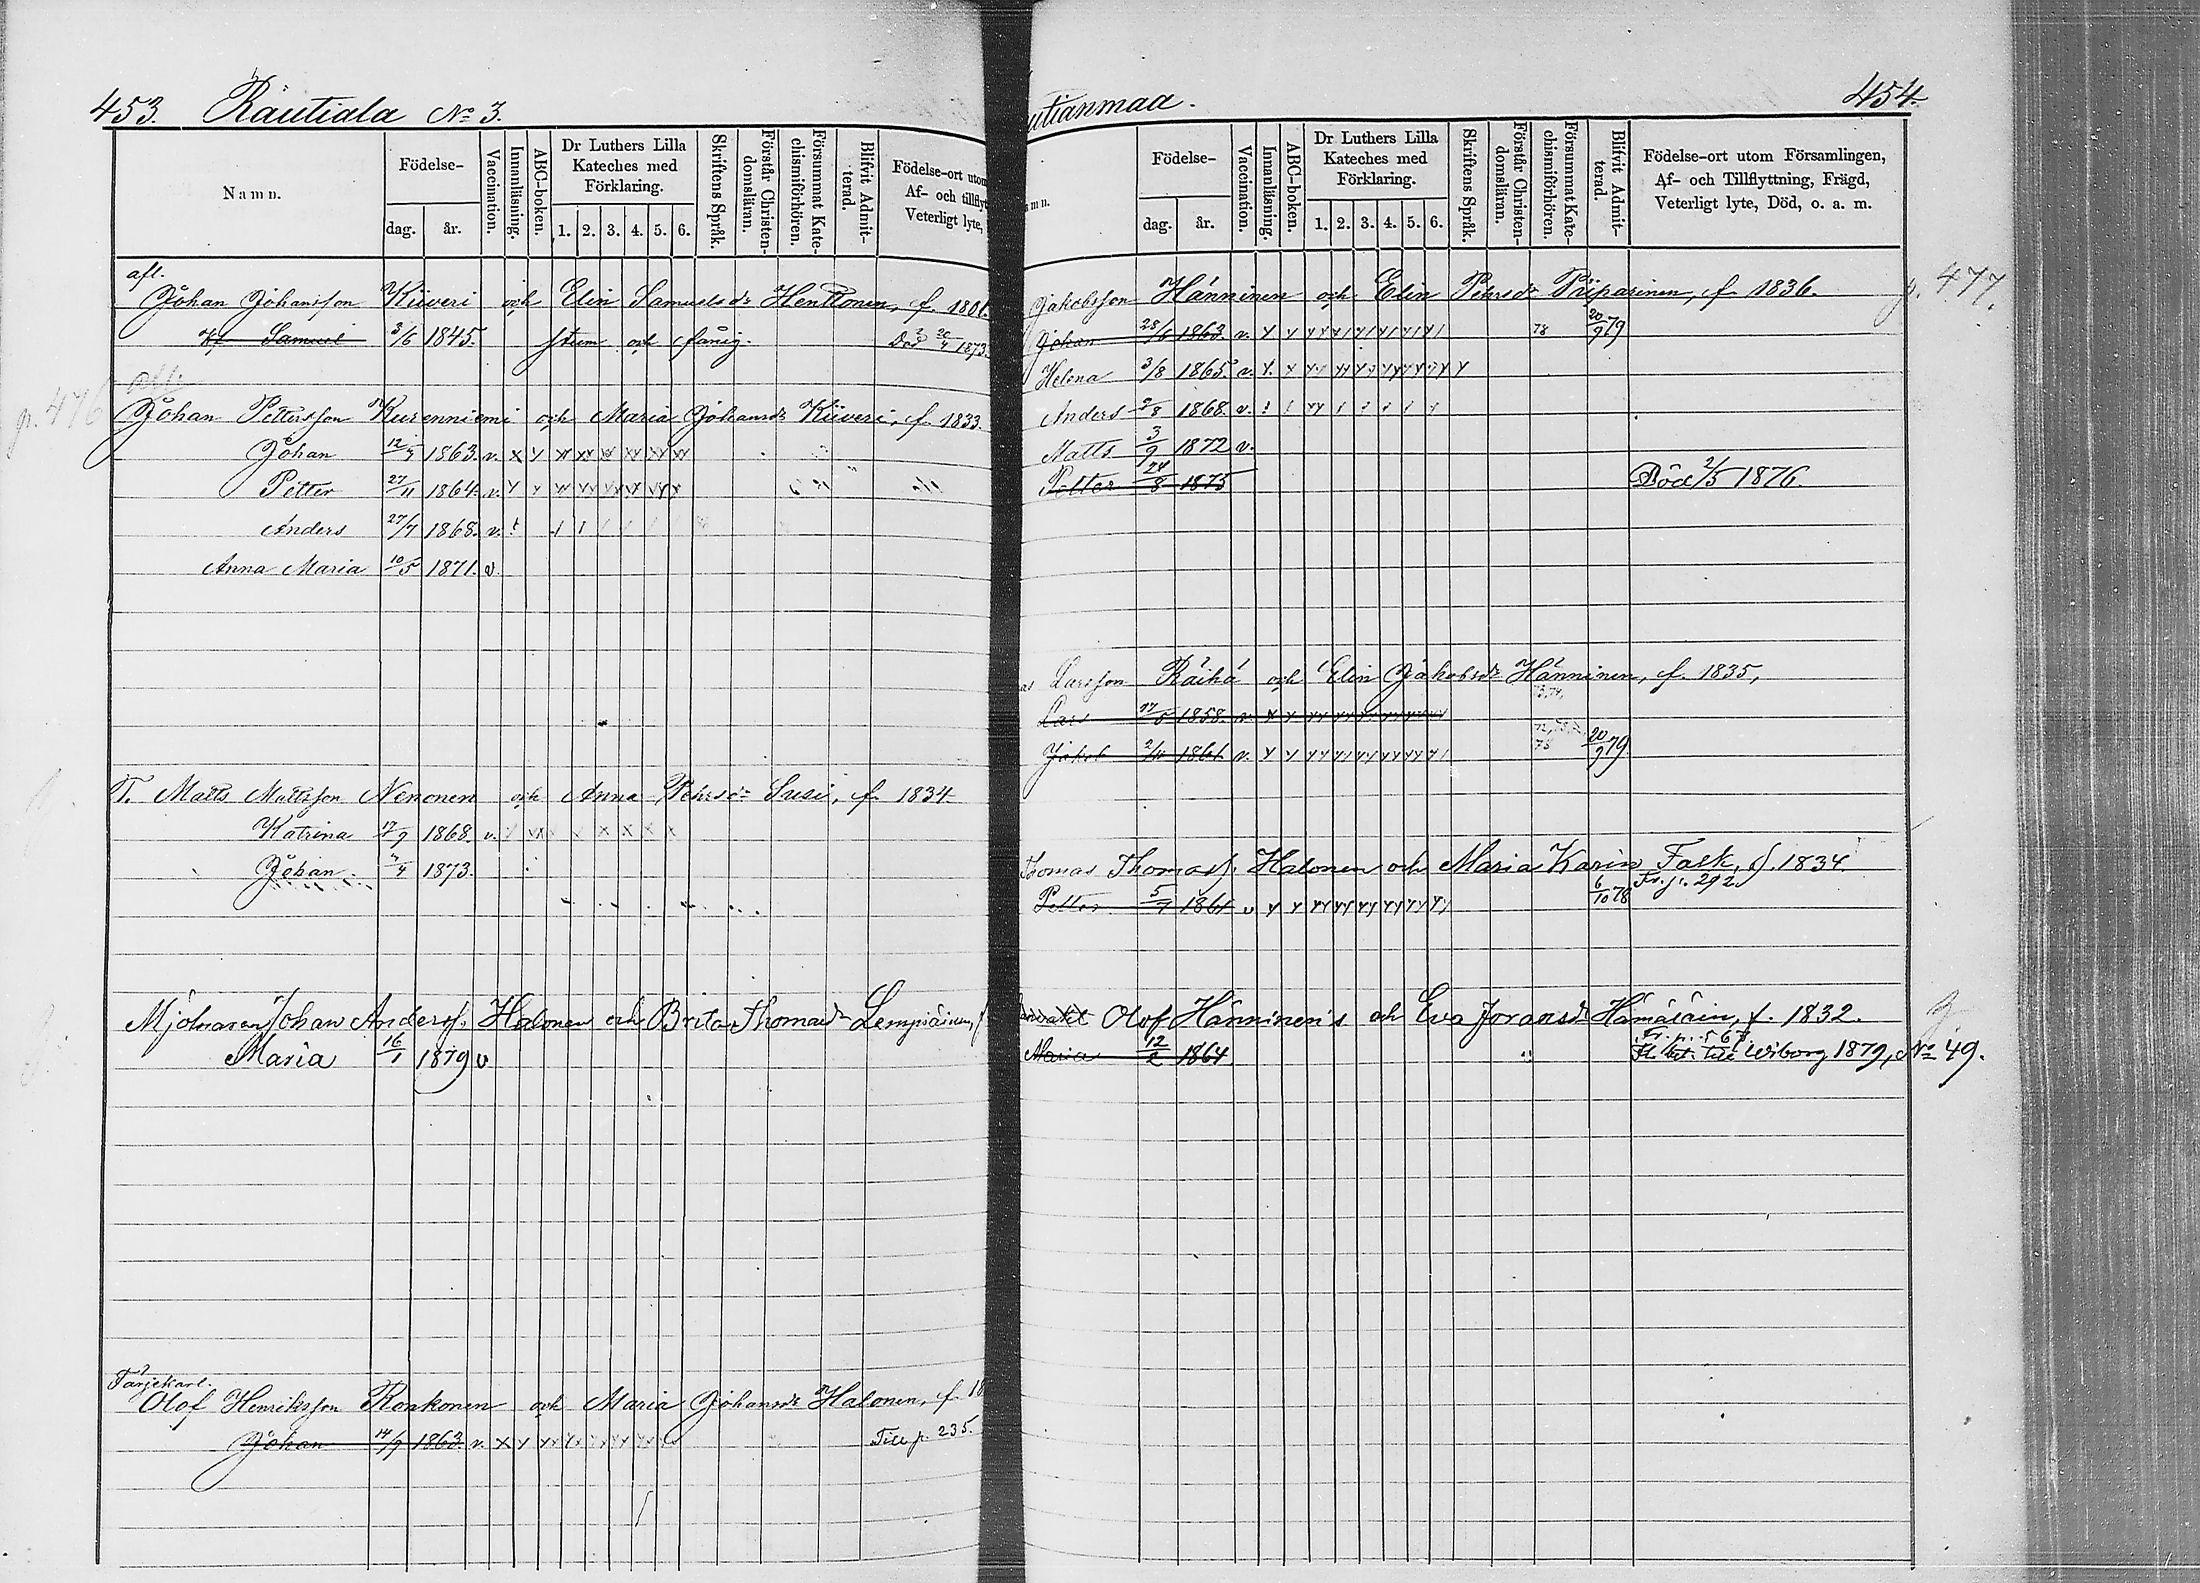 453. Räutiala No 3.
Namn.
Födelse-
dag. år.
Vaccination.
Innanläsning.
ABC-boken.
Dr Luthers Lilla
Kateches med
Förklaring.
1. 2. 3. 4. 5. 6.
Skriftens Språk.
Förstår Christen-
domsläran.
Försummat Kate-
chismiförhören.
Blifvit Admit-
terad.
Födelse-ort utom
Af- och tillflyt
Veterligt lyte,
afl.
Johan Johansson Kiiveri och Elin Samuelsdr Henttonen, f. 1801.
Samuel 3/6 1845. stum och fånig. Död 20/4 1873.
p. 476
Johan Pettersson Kurenniemi och Maria Johansdr Kiiveri, f. 1833.
Johan 1863. v. x
Petter 27/11 1864. v.
Anders 27/7 1868. v.
Anna Maria 10/5 1871. v.
T. Matts Mattsson Nenonen och Anna Pehrsdr Susi, f. 1834.
Katrina 17/9 1868. v.
Johan 1873.
Mjölnaren Johan Andersf. Halonen och Brita Thomasdr Lempiäinen, f
Maria 16/1 1879 v
Färjekarl.
Olof Henriksson Ronkonen och Maria Johansdr Halonen, f. 18
Johan 14/9 1863. v. Till p. 235.
utianmaa. 454.
amn.
Födelse-
dag. år.
Vaccination.
Innanläsning.
ABC-boken.
Dr Luthers Lilla
Kateches med
Förklaring.
1. 2. 3. 4. 5. 6.
Skriftens Språk.
Förstår Christen-
domsläran.
Försummat Kate-
chismiförhören.
Blifvit Admit-
terad.
Födelse-ort utom Församlingen,
Af- och Tillflyttning, Frägd,
Veterligt lyte, Död, o. a. m.
Jakobsson Hänninen och Elin Pehrsdr Piiparinen, f. 1836. p. 477.
Johan 28/6 1863. v. 78 20/9 79
Helena 3/8 1865. v.
Anders 2/8 1868. v.
Matts 3/9 1872 v.
Petter 24/8 1875 Död 2/5 1876.
Larsson Räihä och Elin Jakobsdr Hänninen, f. 1835,
Lars 1858. v.
Jakob 1861 v. 78 20/9 79
Thomas Thomasf. Halonen och Maria Karin Falk, f. 1834.
Fr. p. 292.
Petter 5/7 1861 v 6/10 78
Olof Hänninen's och Eva Joransdr Hämäläin, f. 1832.
Fr. p. 567.
Maria 12/2 1864 Fl. bet. till Wiborg 1879, No 49.